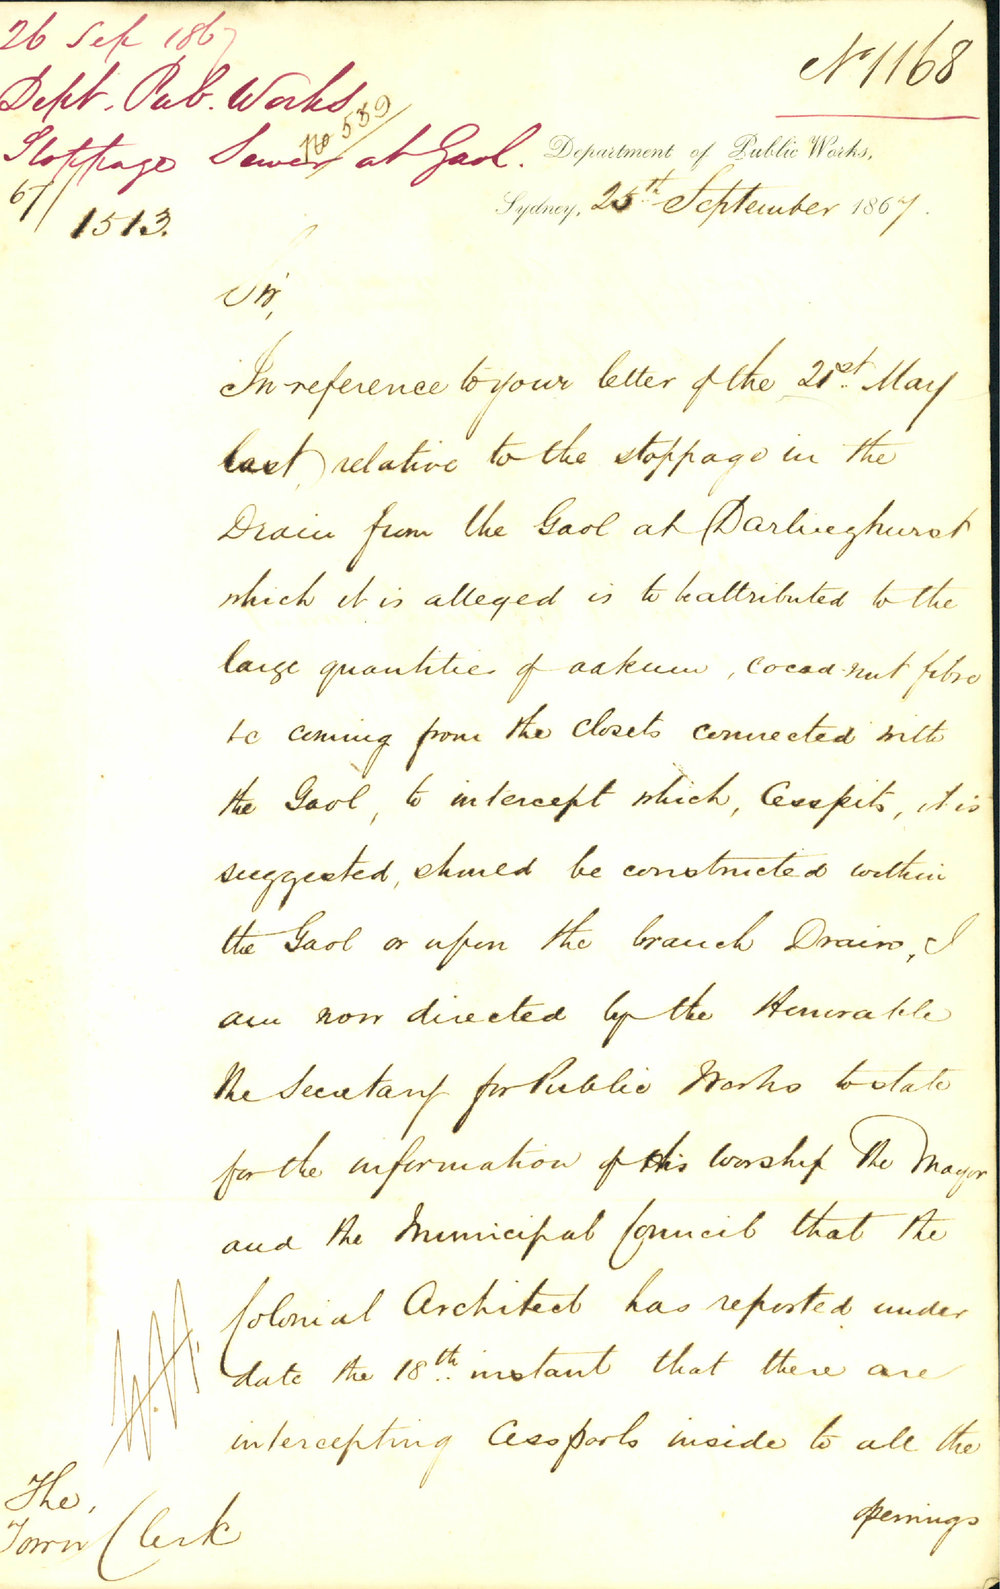 26 Sep 1867
Dept. Pub. Works
No 539
Stoppage Sewer at Gaol.
67/1513.
No 1168
Department of Public Works,
Sydney, 25th September 1867.
Sir,
In reference to your letter of the 21st. May
last, relative to the stoppage in the
Drain from the Gaol at Darlinghurst
which it is alleged is to be attributed to the
large quantities of oakum, cocoa-nut fibre
&c coming from the closets connected with
the Gaol, to intercept which, Cesspits, it is
suggested, should be constructed within
the Gaol or upon the branch Drain, I
am now directed by the Honorable
the Secretary for Public Works to state
for the information of His Worship The Mayor
and the Municipal Council that the
Colonial Architect has reported under
date the 18th. instant that there are
intercepting Cesspools inside to all the
openings
The,
Town Clerk